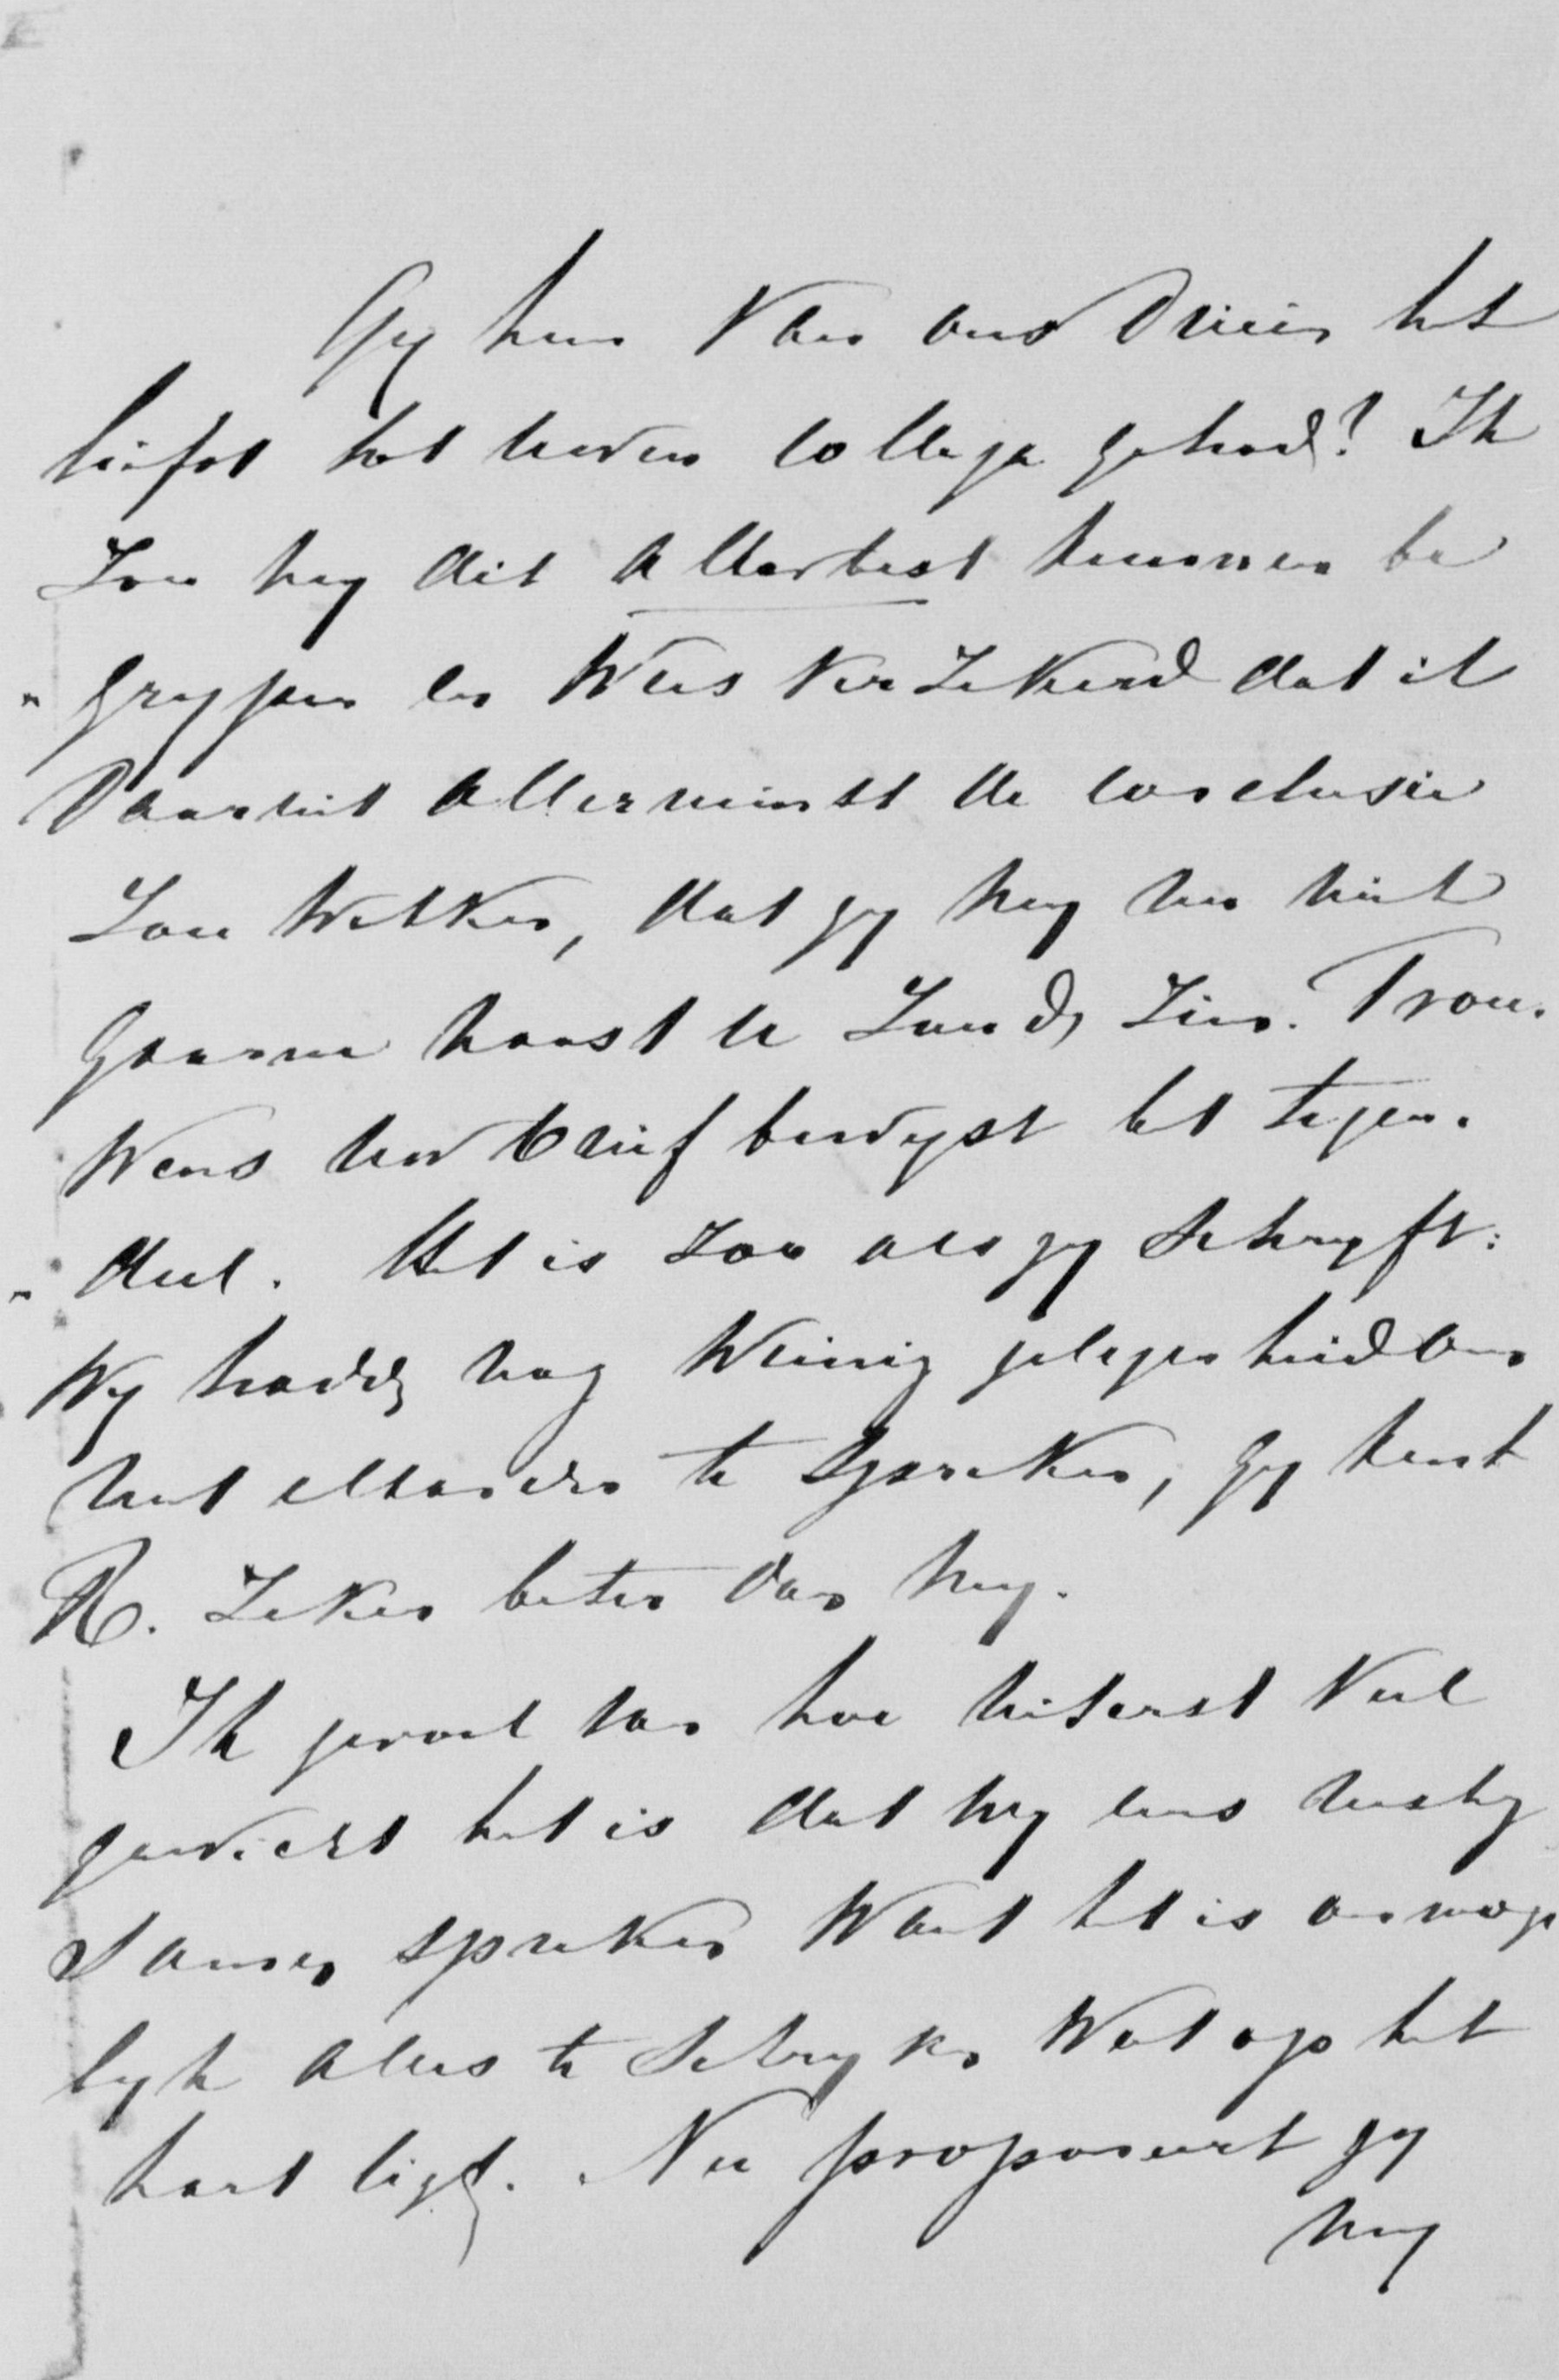 Gy hem van ons Drieën het
liefst tot uwen collega gehad? Ik
zou my dit allerbest kunnen be
" grypen en wees verzekerd dat ik
Daaruit allerminst de conclusie
zou trekken, dat gy my nu niet
gaarne naast u zoudt zien. Trou-
wens uw brief bewyst het tegen-
" deel. Het is zoo als gy schryft:
wy hadden nog weinig gelegenheid om
met elkander te spreken, gy kent
R. zeker beter dan my.
Ik gevoel dan hoe uiterst veel
gewicht het is dat wy eens rustig
samen spreken want het is onmoge
lyk alles te schryven wat op het
hart ligt. Nu proponeert gy
my